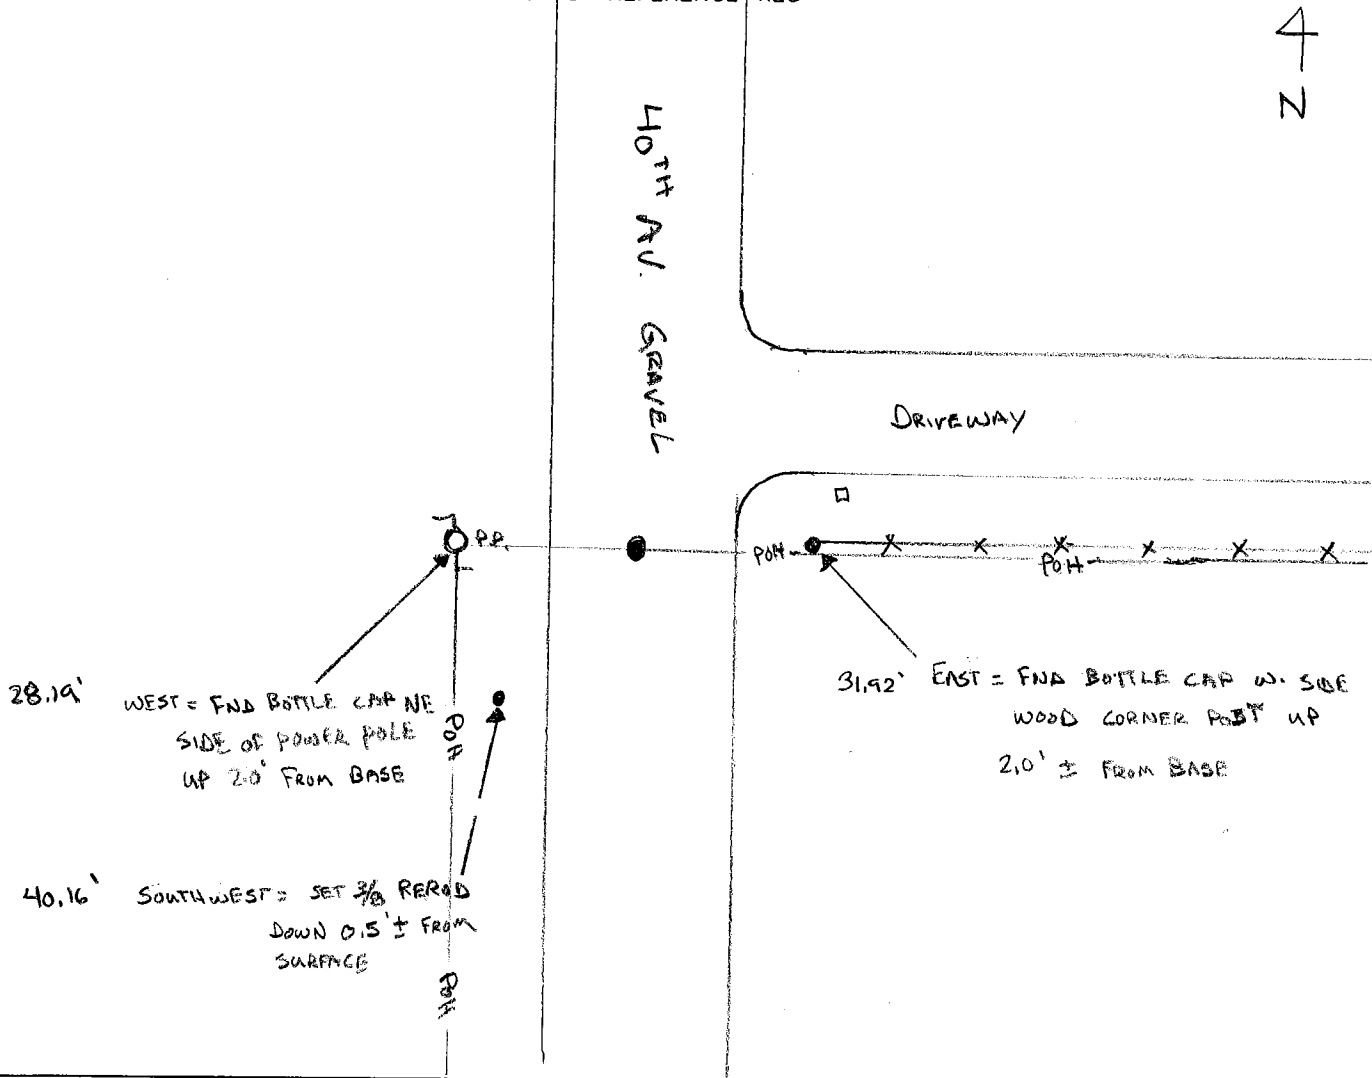 N
40TH AV. GRAVEL
DRIVEWAY
P.P.
POH
POH
28.19' WEST = FND BOTTLE CAP NE
SIDE OF POWER POLE
UP 2.0' FROM BASE
POH
31.92' EAST = FND BOTTLE CAP W. SIDE
WOOD CORNER POST UP
2.0' ± FROM BASE
40.16' SOUTHWEST = SET 3/8 REROD
DOWN 0.5' ± FROM
SURFACE
POH